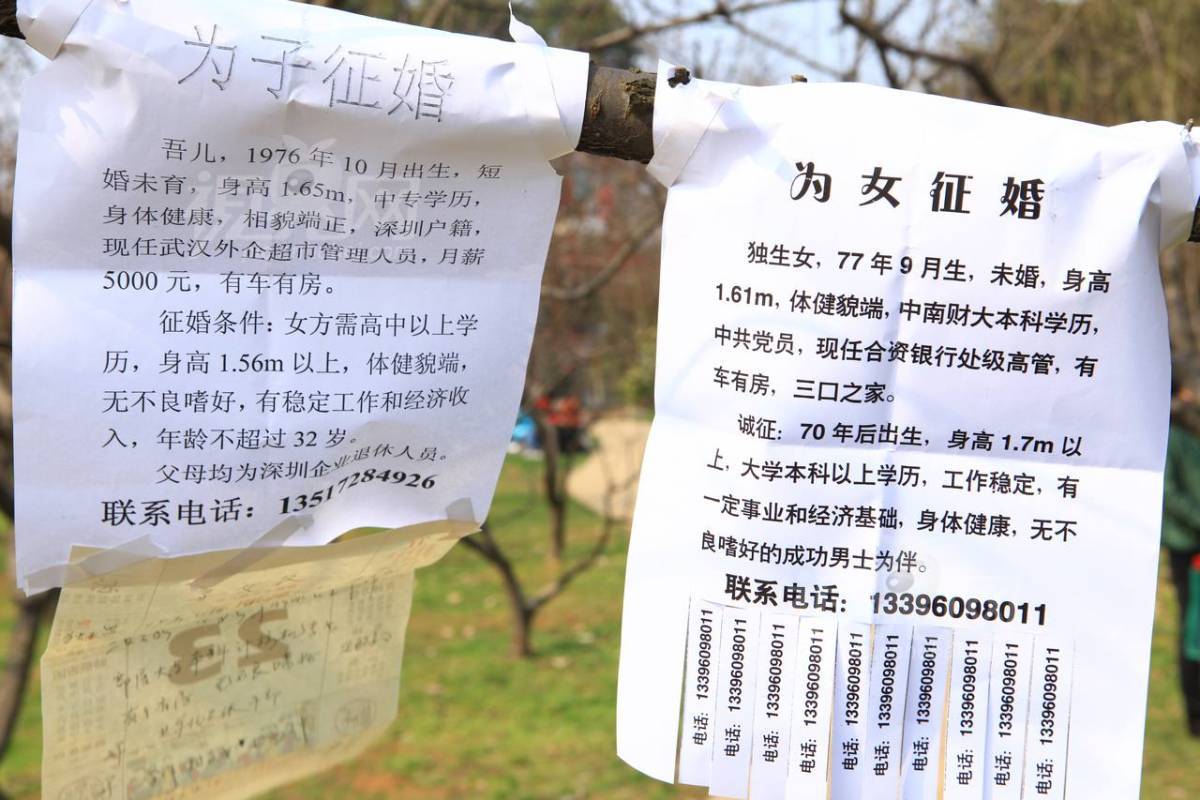 为子征婚
吾儿，1976年10月出生，短
婚未育，身高1.65m，中专学历，
身体健康，相貌端正，深圳户籍，
现任武汉外企超市管理人员，月薪
5000元，有车有房。
征婚条件：女方需高中以上学
历，身高1.56m以上，体健貌端，
无不良嗜好，有稳定工作和经济收
入，年龄不超过32岁。
父母均为深圳企业退休人员。
联系电话：13517284926
23
为女征婚
独生女，77年9月生，未婚，身高
1.61m，体健貌端，中南财大本科学历，
中共党员，现任合资银行处级高管，有
车有房，三口之家。
诚征：70年后出生，身高1.7m以
上，大学本科以上学历，工作稳定，有
一定事业和经济基础，身体健康，无不
良嗜好的成功男士为伴。
联系电话：13396098011
电话：13396098011
电话：13396098011
电话：13396098011
电话：13396098011
电话：13396098011
电话：13396098011
电话：13396098011
电话：13396098011
电话：13396098011
电话：13396098011